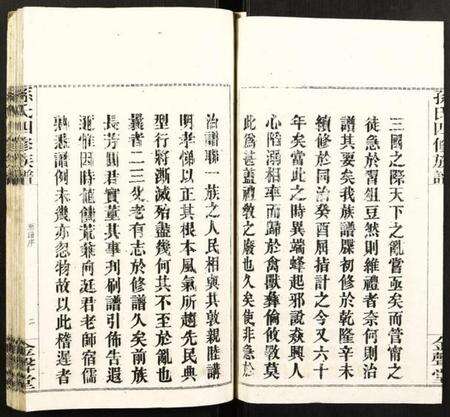 孫氏四修族譜
金聲堂
三國之際天下之亂嘗亟矣而管甯之
徒急於習俎豆然則維禮者奈何則治
譜其要矣我族譜牒初修於乾隆辛未
續修於同治癸酉屈指計之今又六十
年矣當此之時異端蜂起邪說炎興人
心陷溺相率而歸於禽獸彝倫攸斁莫
此爲甚蓋禮教之廢也久矣使非急於
治譜聯一族之人民相與其敦親睦講
明孝悌以正其根本風氣所趨先民典
型行將澌滅殆盡幾何其不至於亂也
曩者二三父老有志於修譜久矣前族
長芳圃君實董其事刋刷譜引佈告遐
邇惟因時值饑荒兼向廷君老師宿儒
熟悉譜例未幾亦忽物故以此稽遲者
孫氏四修族譜
譜序
二
金聲堂